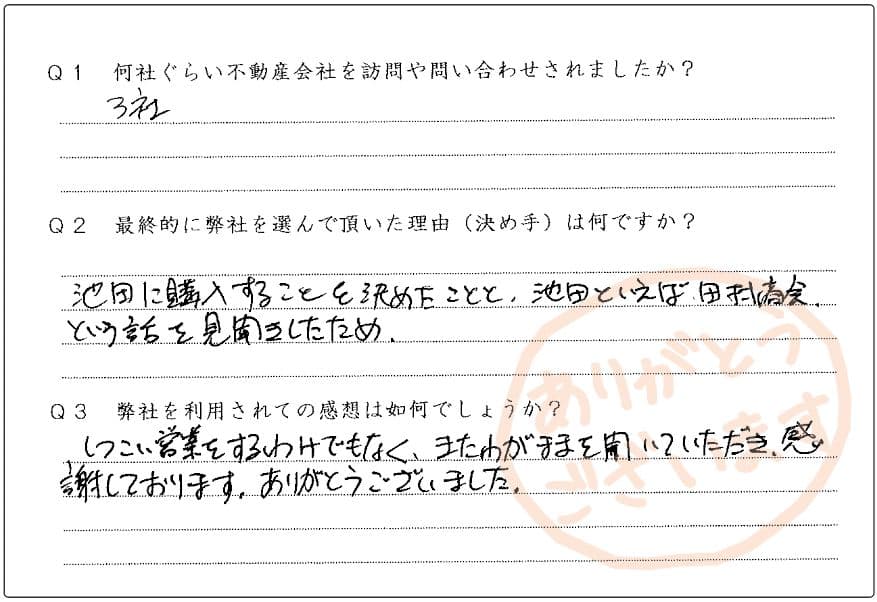 Q1 何社ぐらい不動産会社を訪問や問い合わせされましたか？
3社
Q2 最終的に弊社を選んで頂いた理由（決め手）は何ですか？
池田に購入することを決めたことと、池田といえば田村商会、
という話を見聞きしたため、
Q3 弊社を利用されての感想は如何でしょうか？
しつこい営業をするわけでもなく、またわがままを聞いていただき、感
謝しております。ありがとうございました。
ありがとう
ございます